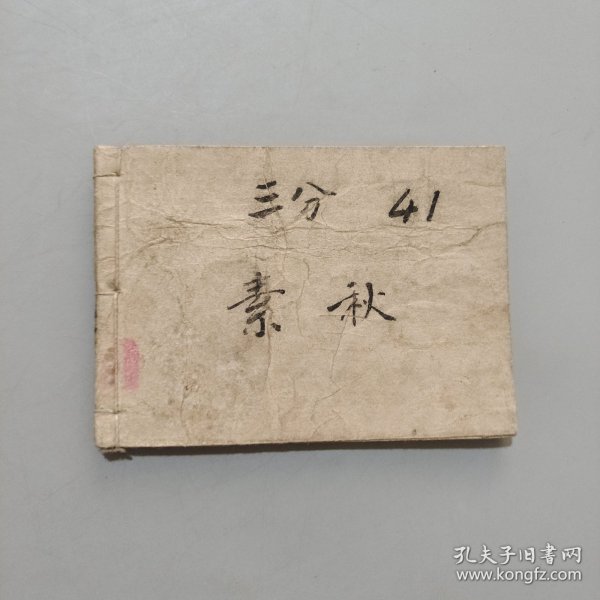 三分 41
素秋
孔夫子旧書网
www.kongfz.com